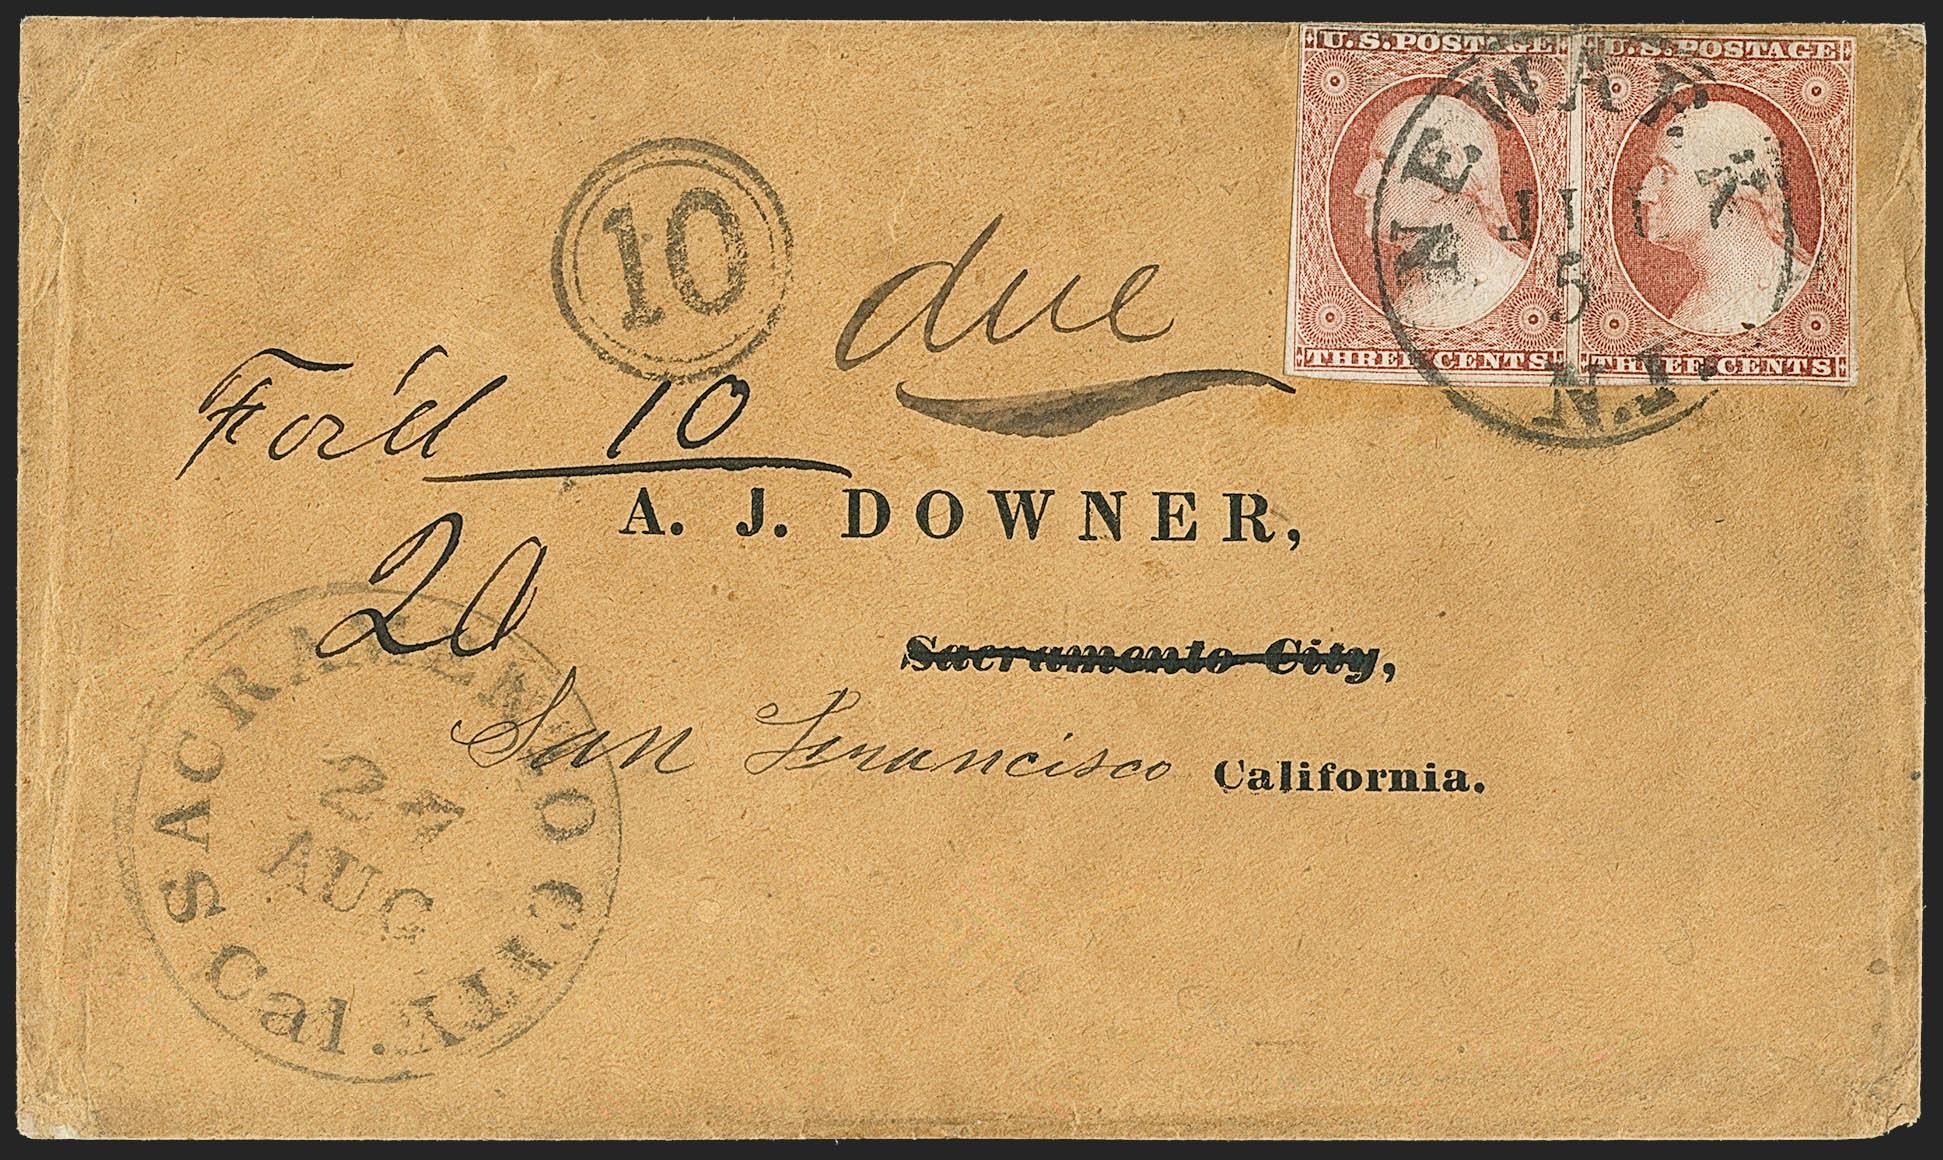 U.S.POSTAGE U.S.POSTAGE
THREE CENTS THREE CENTS
NEWARK
5
N.J.
10
due
For'd 10
20
A. J. DOWNER,
Sacramento City,
San Francisco California.
SACRAMENTO CITY
24
AUG
Cal.